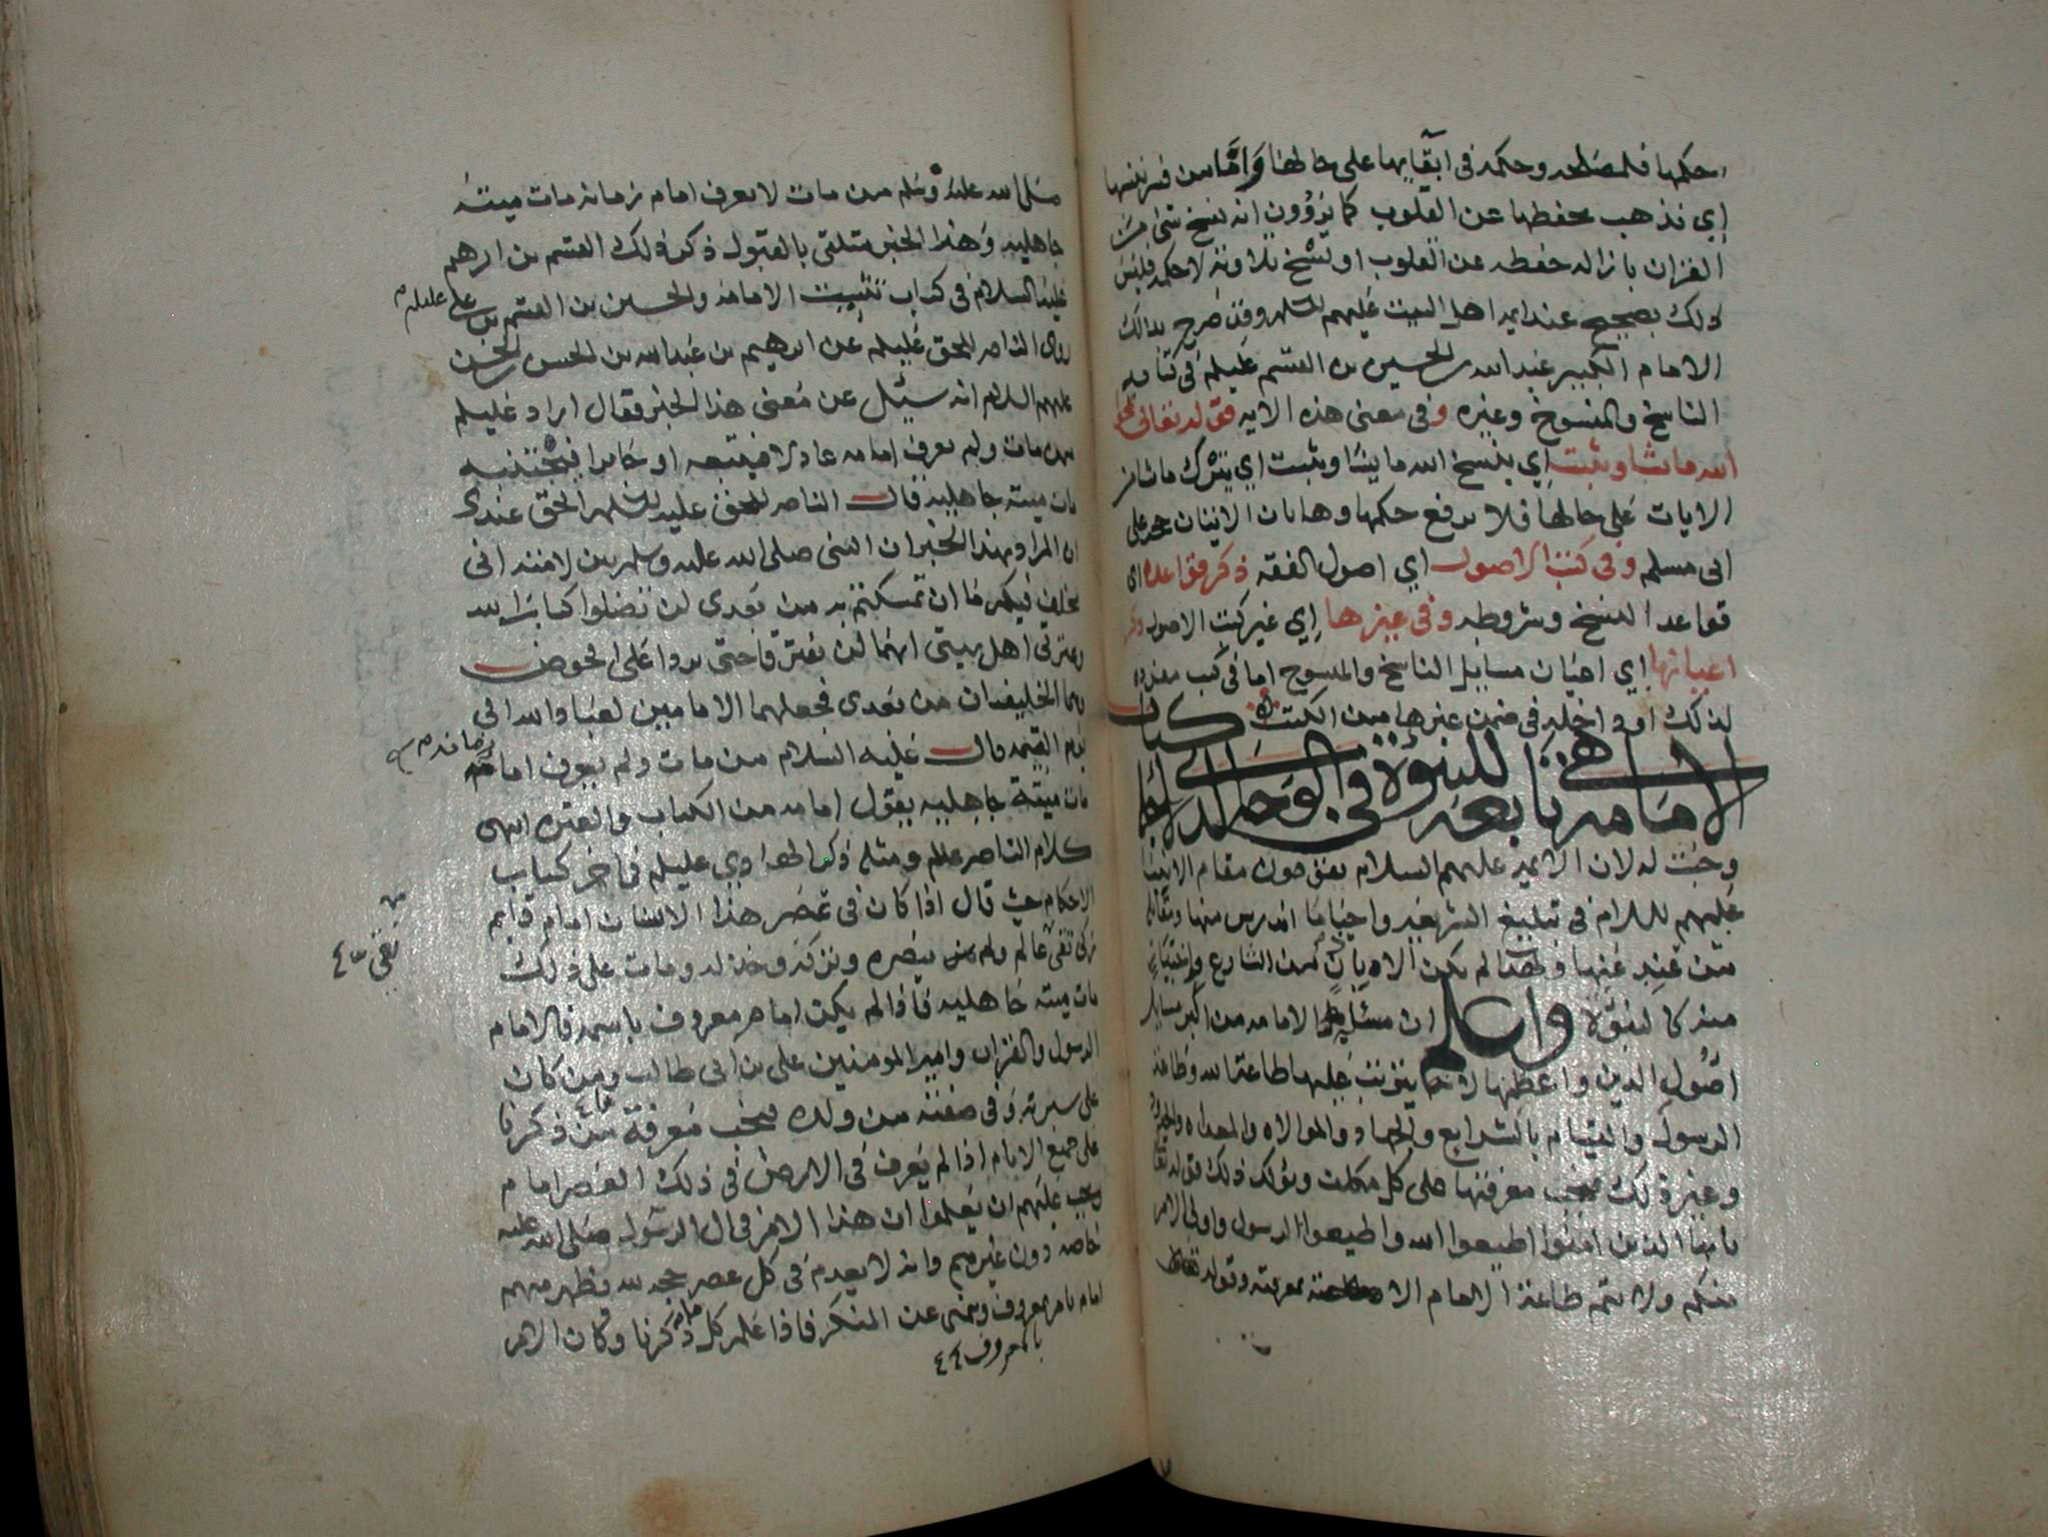 حكمها فلمصلحه وحكمه فى ابقايها على حالها واما من فسر ننسها
اي نذهب بحفظها عن القلوب كما يروون انه نسخ شى من
القران بازاله حفظه عن القلوب او نسخ تلاوته لا حكمه فليس
ذلك بصحيح عند ايمه اهل البيت عليهم السلم وقد صرح بذالك
الامام الكبير عبد الله بن الحسين بن القسم عليلم فى كتابه
الناسخ والمنسوخ وغيره وفى معنى هذه الايه قوله تعالى يمحوا
الله ما يشا ويثبت اي ينسخ الله ما يشا ويثبت اي يترك ما شا من
الايات على حالها فلا يرفع حكمها وهاتان الايتان حجه على
ابى مسلم وفى كتب الاصول اي اصول الفقه ذكر قواعده اي
قواعد النسخ وشروطه وفى غيرها اي غير كتب الاصول ذكر
اعيانها اي اعيان مسايل الناسخ والمنسوخ اما فى كتب مفرده
لذلك او داخله فى ضمن غيرها من الكتب كتاب
الامامه هى تابعه للنبوة فى الوجه الذي
وجبت له لان الايمه عليهم السلام يقومون مقام الانبيا
عليهم السلام فى تبليغ الشريعه واحيا ما اندرس منها ومقاتله
من عند عنها ولهذا لم يكن الا باذن من الشارع واختيار
منه كالنبوة واعلم ان مسئلة الامامه من اكبر مسايل
اصول الدين واعظمها لانه يترتب عليها طاعة الله وطاعة
الرسول والقيام بالشرايع والجهاد والموالاه والمعاداه والحدود
وغير ذلك فيجب معرفتها على كل مكلف ويؤكد ذلك قوله تعالى
يا ايها الذين امنوا اطيعوا الله واطيعوا الرسول واولى الامر
منكم ولا تتم طاعة الامام الا بمعرفته وقوله
صلى الله عليه وسلم من مات لا يعرف امام زمانه مات ميتة
جاهليه وهذا الخبر متلقى بالقبول ذكر ذلك القسم بن ابرهيم
عليه السلام فى كتاب تثبيت الامامه والحسين بن القسم بن على عليلم
روى الناصر للحق عليلم عن ابرهيم بن عبد الله بن الحسن بن الحسن
عليهم السلام انه سئيل عن معنى هذا الخبر فقال اراد عليلم
من مات ولم يعرف امامه عادلا فيتبعه او جايرا فيجتنبه
مات ميتة جاهليه قال الناصر للحق عليه السلم الحق عندى
ان المراد بهذا الخبر ان النبى صلى الله عليه وسلم بين لامته انى
مخلف فيكم ما ان تمسكتم به من بعدى لن تضلوا كتاب الله
وعترتى اهل بيتى انهما لن يفترقا حتى يردا على الحوض
وهما الخليفتان من بعدى فجعلهما الامامين لعباد الله الى
يوم القيمه قال عليه السلام من مات ولم يعرف امام زمانه
مات ميتة جاهليه يقول امامه من الكتاب والعتره انتهى
كلام الناصر عللم ومثله ذكر الهادي عليلم فى اخر كتاب
الاحكام حيث قال اذا كان فى عصر هذا الانسان امام قايم
زكى تقى عالم ولم ينصره وتركه وخذله ومات على ذلك
تقى
مات ميتة جاهليه فاذا لم يكن امام معروف باسمه فالامام
الرسول والقران وامير المومنين على بن ابى طالب ومن كان
على سيرته وفى صفته من ولده فيجب معرفة من ذكرنا
على جميع الانام اذا لم يعرف فى الارض فى ذلك العصر امام
ويجب عليهم ان يعلموا ان هذا الامر فى ال الرسول صلى الله عليه
خاصه دون غيرهم وانه لا يعدم فى كل عصر حجه لله يظهر منهم
امام يامر بمعروف وينهى عن المنكر فاذا علم كل ما ذكرنا وكان الامر
بالمعروف